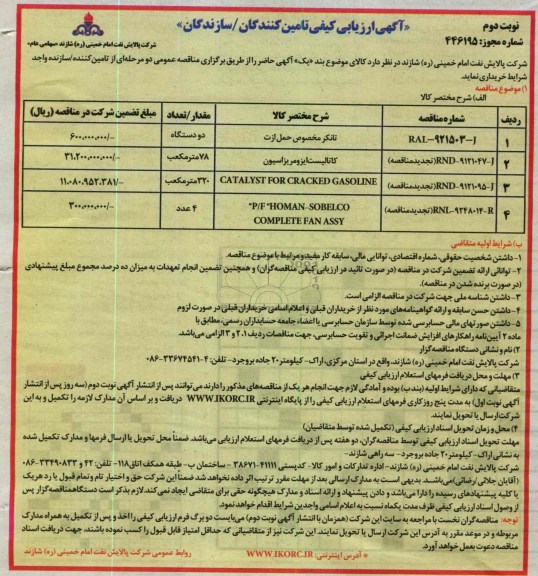 نوبت دوم
«آگهی ارزیابی کیفی تامین کنندگان /سازندگان»
شماره مجوز: ۴۴۶۱۹۵
شرکت پالایش نفت امام خمینی (ره) شازند «سهامی عام»
شرکت پالایش نفت امام خمینی (ره) شازند در نظر دارد کالای موضوع بند «یک» آگهی حاضر را از طریق برگزاری مناقصه عمومی دو مرحله‌ای از تامین کننده/سازنده واجد
شرایط خریداری نماید.
۱) موضوع مناقصه
الف) شرح مختصر کالا
ردیف شماره مناقصه شرح مختصر کالا مقدار/تعداد مبلغ تضمین شرکت در مناقصه (ریال)
۱ RAL-۹۲۱۵۰۳-J تانکر مخصوص حمل ازت دو دستگاه ۶۰۰,۰۰۰,۰۰۰/-
۲ RND-۹۱۲۱۰۴۷-J(تجدید مناقصه) کاتالیست ایزومریزاسیون ۷۸ مترمکعب ۳۱,۲۰۰,۰۰۰,۰۰۰/-
۳ RND-۹۱۲۱۰۹۵-J(تجدید مناقصه) CATALYST FOR CRACKED GASOLINE ۳۲۰ مترمکعب ۱۱,۰۸۰,۹۵۲,۳۸۱/-
۴ RNL-۹۲۴۸۰۱۴-R(تجدید مناقصه) "P/F "HOMAN-SOBELCO
COMPLETE FAN ASSY ۴ عدد ۳۰۰,۰۰۰,۰۰۰/-
ب) شرایط اولیه متقاضی
۱- داشتن شخصیت حقوقی، شماره اقتصادی، توانایی مالی، سابقه کار مفید و مرتبط با موضوع مناقصه.
۲- توانائی ارائه تضمین شرکت در مناقصه (در صورت تائید در ارزیابی کیفی مناقصه‌گران) و همچنین تضمین انجام تعهدات به میزان ده درصد مجموع مبلغ پیشنهادی
(در صورت برنده شدن در مناقصه).
۳- داشتن شناسه ملی جهت شرکت در مناقصه الزامی است.
۴- داشتن حسن سابقه و ارائه گواهینامه‌های مورد نظر از خریداران قبلی و اعلام اسامی خریداران قبلی در صورت لزوم
۵- داشتن صورتهای مالی حسابرسی شده توسط سازمان حسابرسی یا اعضاء جامعه حسابداران رسمی، مطابق با
ماده ۲ آیین‌نامه راهکارهای افزایش ضمانت اجرائی و تقویت حسابرسی، جهت مناقصات ردیف ۱، ۲ و ۳ الزامی می‌باشد.
۲) نام و نشانی دستگاه مناقصه‌گزار
شرکت پالایش نفت امام خمینی (ره) شازند. واقع در استان مرکزی، اراک- کیلومتر ۲۰ جاده بروجرد- تلفن: ۴-۳۳۶۷۴۵۴۱-۰۸۶
۳) مهلت و محل دریافت فرمهای استعلام ارزیابی کیفی
متقاضیانی که دارای شرایط اولیه (بند ب) بوده و آمادگی لازم جهت انجام هر یک از مناقصه‌های مذکور را دارند می‌توانند پس از انتشار آگهی نوبت دوم (سه روز پس از انتشار
آگهی نوبت اول) به مدت پنج روز کاری فرمهای استعلام ارزیابی کیفی را از پایگاه اینترنتی WWW.IKORC.IR دریافت و بر اساس آن مدارک لازمه را تکمیل و به این
شرکت ارسال یا تحویل نمایند.
۴) محل و زمان تحویل اسناد ارزیابی کیفی (تکمیل شده توسط متقاضیان)
مهلت تحویل اسناد ارزیابی کیفی توسط مناقصه‌گران، دو هفته پس از دریافت فرمهای استعلام ارزیابی می‌باشد. ضمناً محل تحویل یا ارسال فرمها و مدارک تکمیل شده
به نشانی اراک- کیلومتر ۲۰ جاده بروجرد- سه راهی شازند-
شرکت پالایش نفت امام خمینی (ره) شازند- اداره تدارکات و امور کالا- کدپستی ۴۱۱۱۱-۳۸۶۷۱ - ساختمان ب- طبقه همکف اتاق ۱۱۸- تلفن: ۴۲ و ۳۳۴۹۰۸۳۳-۰۸۶
(آقایان جلالی/ رضائی) می‌باشد. بدیهی است به مدارک ارسالی بعد از مهلت مقرر ترتیب اثر داده نخواهد شد ضمناً این شرکت حق و اختیار تام و تمام قبول یا رد هر یک
یا کلیه پیشنهادهای رسیده را دارا می‌باشد و دادن پیشنهاد و ارائه اسناد و مدارک هیچگونه حقی برای متقاضی ایجاد نمی‌کند. لازم بذکر است دستگاه مناقصه‌گزار پس
از وصول اسناد ارزیابی کیفی ظرف مدت یکماه نسبت به اعلام اسامی واجدین شرایط اقدام خواهد نمود.
توجه: مناقصه‌گران نخست با مراجعه به سایت این شرکت (همزمان با انتشار آگهی نوبت دوم) می‌بایست دو برگ فرم ارزیابی کیفی را اخذ و پس از تکمیل به همراه مدارک
مربوطه و در موعد مقرر به آدرس این شرکت ارسال یا تحویل نمایند. این شرکت نیز از متقاضیانی که حداقل امتیاز قابل قبول را کسب نموده باشند، جهت دریافت اسناد
مناقصه دعوت بعمل خواهد آورد.
* آدرس اینترنتی: WWW.IKORC.IR
روابط عمومی شرکت پالایش نفت امام خمینی (ره) شازند